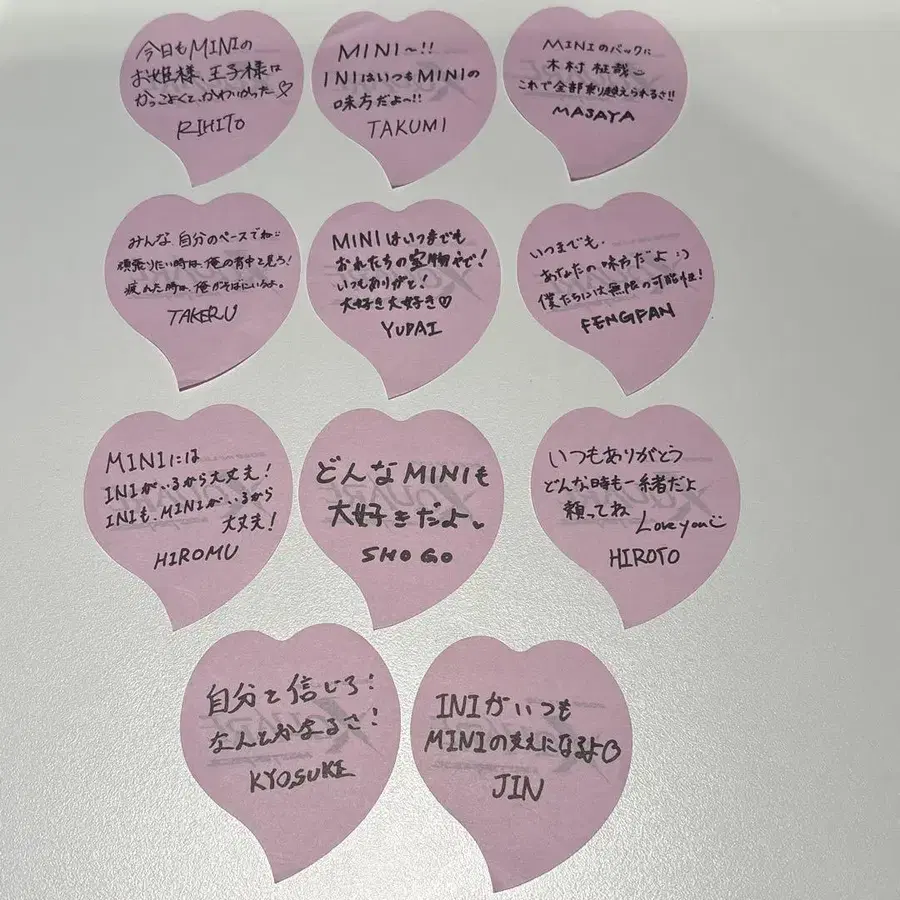 今日もMINIの
お姫様、王子様は
かっこよくて、かわいかった♡
RIHITO
MINI〜!!
INIはいつもMINIの
味方だよ〜!!
TAKUMI
MINIのバックに
木村柾哉
これで全部乗り越えられるさ!!
MASAYA
みんな 自分のペースでね
頑張りたい時は、俺の背中を見ろ!
疲れた時は、俺がそばにいるよ。
TAKERU
MINIはいつまでも
おれたちの宝物やで!
いつもありがと!
大好き大好き♡
YUDAI
いつまでも、
あなたの味方だよ :)
僕たちには無限の可能性!
FENGFAN
MINIには
INIがいるから大丈夫!
INIも、MINIがいるから
大丈夫!
HIROMU
どんなMINIも
大好きだよ
SHOGO
いつもありがとう
どんな時も一緒だよ
頼ってね
Love you
HIROTO
自分を信じろ!
なんとかなるさ!
KYOSUKE
INIがいつも
MINIの支えになるよ♡
JIN